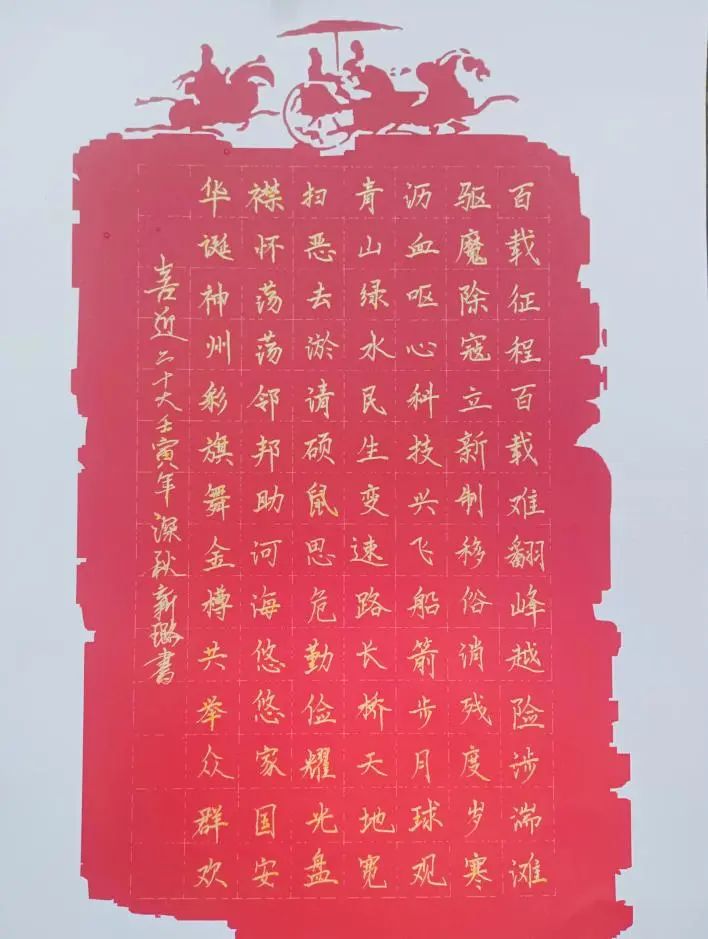 百载征程百载难翻峰越险涉湍滩
驱魔除寇立新制移俗消残度岁寒
沥血呕心科技兴飞船箭步月球观
青山绿水民生变速路长桥天地宽
扫恶去淤请硕鼠思危勤俭耀光盘
襟怀荡荡邻邦助河海悠悠家国安
华诞神州彩旗舞金樽共举众群欢
喜迎二十大壬寅年深秋新璐书